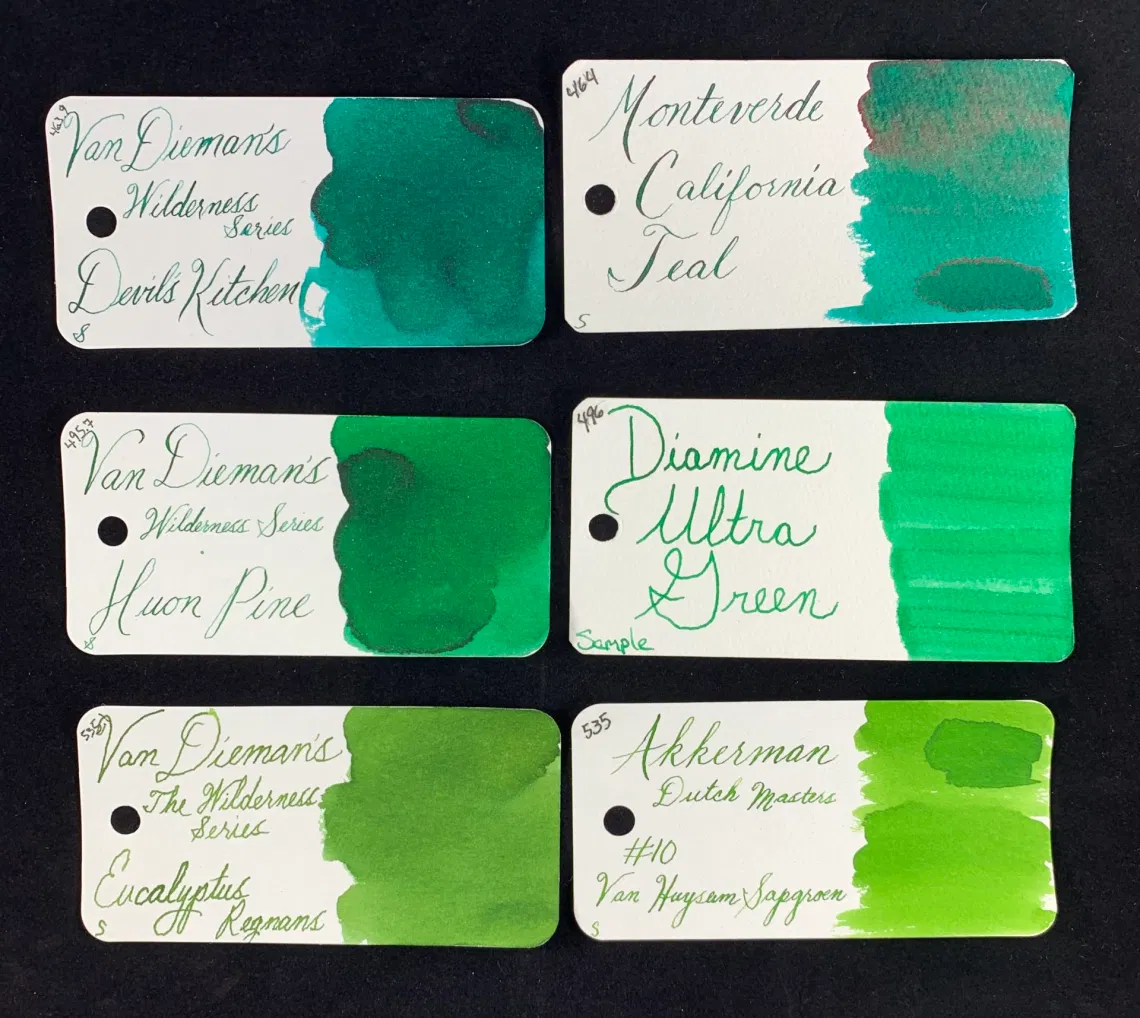 463.9
Van Dieman's
Wilderness
Series
Devil's Kitchen
S
464
Monteverde
California
Teal
S
495.7
Van Dieman's
Wilderness Series
Huon Pine
S
496
Diamine
Ultra
Green
Sample
Van Dieman's
The Wilderness
Series
Eucalyptus
Regnans
S
535
Akkerman
Dutch Masters
#10
Van Huysum Sapgroen
S